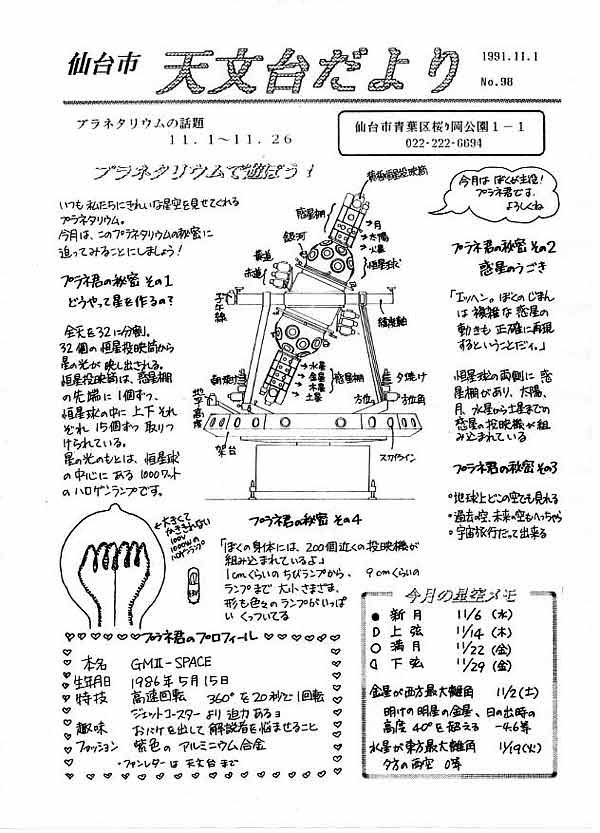 仙台市 天文台だより
1991.11.1
No.98
プラネタリウムの話題
11.1～11.26
仙台市青葉区桜ヶ岡公園1－1
022-222-6694
プラネタリウムで遊ぼう！
いつも私たちにきれいな星空を見せてくれる
プラネタリウム。
今月は、このプラネタリウムの秘密に
迫ってみることにしましょう！
今月は ぼくが主役！
プラネ君です。
よろしくね
プラネ君の秘密 その1
どうやって星を作るの？
全天を32に分割。
32個の恒星投映筒から
星の光が映し出される。
恒星投映筒は、惑星棚
の先端に1個ずつ、
恒星球の中に上下それ
ぞれ15個ずつ取りつ
けられている。
星の光のもとは、恒星球
の中心にある1000ワット
のハロゲンランプです。
惑星棚
月
太陽
火星
銀河
恒星球
黄道
赤道
子午線
緯度軸
水星
金星
木星
土星
惑星棚
朝焼け
夕焼け
地平高度
方位
方位角
架台
スカイライン
プラネ君の秘密 その2
惑星のうごき
「エッヘン。ぼくのじまん
は 複雑な惑星の
動きも正確に再現
するということだィ。」
恒星球の両側に惑
星棚があり、太陽、
月、水星から土星までの
惑星の投映機が組
み込まれている
プラネ君の秘密 その3
°地球上どこの空でも見れる
°過去の空、未来の空もへっちゃら
°宇宙旅行だって出来る
大きくて
なきされない
100V
1000Wの
ハロゲンランプ
プラネ君の秘密 その4
「ぼくの身体には、200個近くの投映機が
組み込まれているよ」
1cmくらいのちびランプから、9cmくらいの
ランプまで 大小さまざま、
形も色々のランプがいっぱ
いくっついてる
プラネ君のプロフィール
本名 GMⅡ-SPACE
生年月日 1986年5月15日
特技 高速回転 360°を20秒で1回転
ジェットコースターより迫力あるョ
趣味 おバケを出して解説者を悩ませること
ファッション 紫色のアルミニウム合金
・ファンレターは天文台まで
今月の星空メモ
● 新月 11/6 (水)
D 上弦 11/14 (木)
○ 満月 11/22 (金)
α 下弦 11/29 (金)
金星が西方最大離角 11/2(土)
明けの明星の金星、日の出時の
高度 40°を超える -4.6等
水星が東方最大離角 11/19(火)
夕方の西空 0等